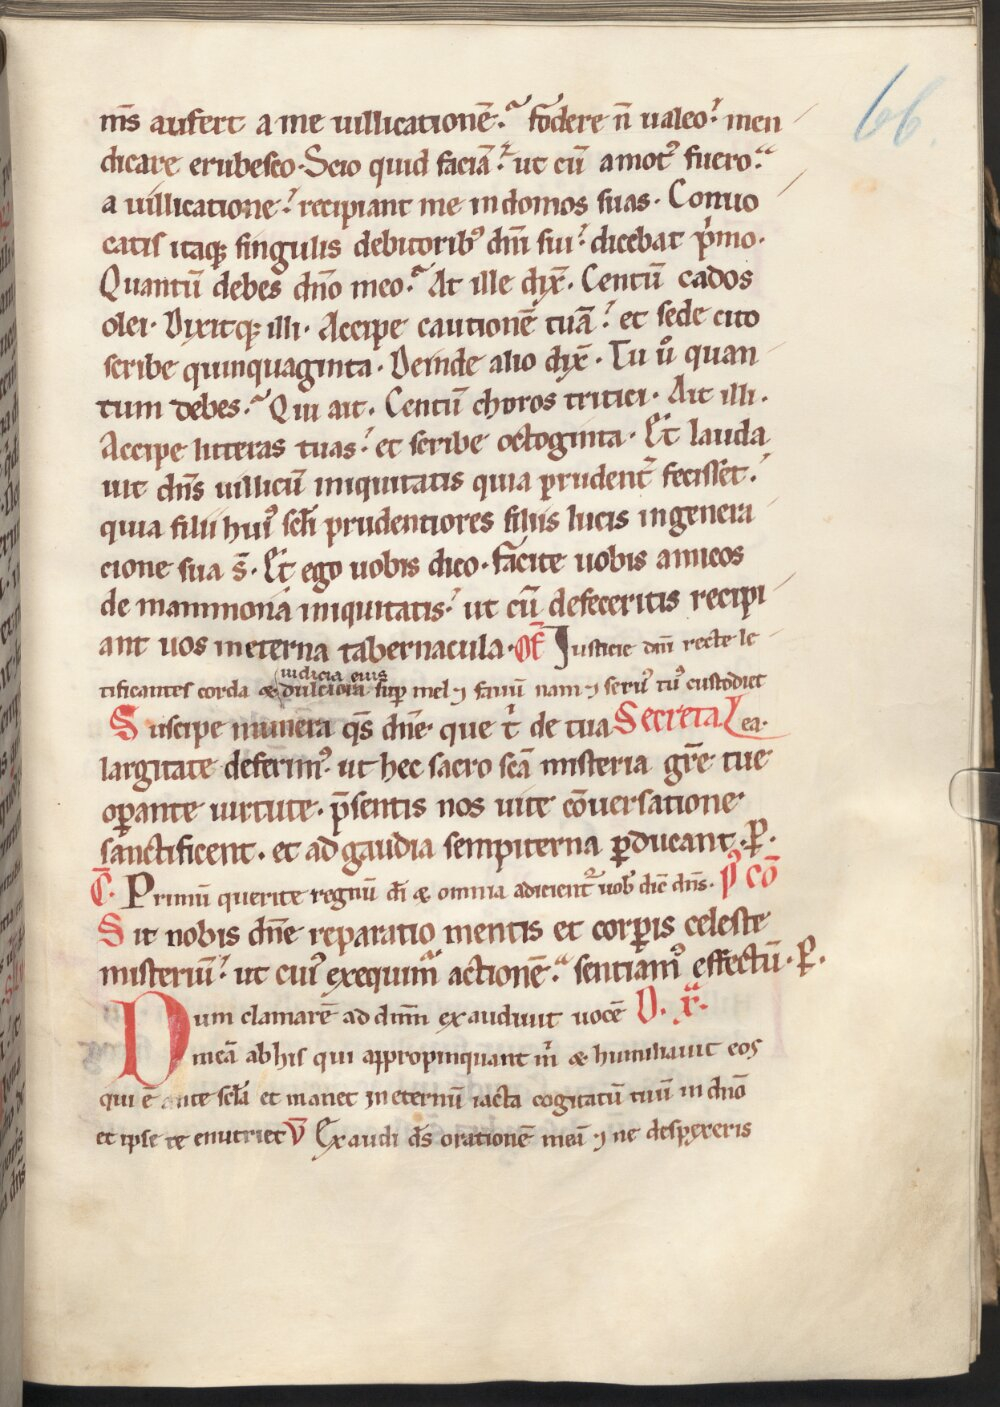 66.
m̄s aufert a me uillicationē. fodere n̄ ualeo. men
dicare erubesco. Scio quid faciā. ut cū amotꝰ fuero.
a uillicatione. recipiant me in domos suas. Conuo
catis itaqꝫ singulis debitoribꝰ dn̄i sui. dicebat pͥmo.
Quantū debes dn̄o meo. At ille dix̄. Centū cados
olei. Dixitqꝫ illi. Accipe cautionē tuā. et sede cito
scribe quinquaginta. Deinde alio dix̄. Tu uͦ quan
tum debes. Qui ait. Centū choros tritici. Ait illi.
Accipe litteras tuas. et scribe octoginta. Et lauda
uit dn̄s uillicū iniquitatis quia prudent᷑ fecisset.
quia filii huiꝰ sc̄li prudentiores filiis lucis in genera
cione sua s̄. Et ego uobis dico. facite uobis amicos
de mammona iniquitatis. ut cū defeceritis recipi
ant uos in eterna tabernacula. Of̄ Iusticie dn̄i recte le
iudicia eius
tificantes corda & dulciora suꝑ mel ⁊ fauū nam ⁊ seruꝰ tuꝰ custodiet
Suscipe munera q̄s dn̄e. que tͥ de tua Secreta ea.
largitate deferimꝰ. ut hec sacro sc̄a misteria gr̄e tue
oꝑante uirtute. p̄sentis nos uite cōuersatione
sanctificent. et ad gaudia sempiterna ꝑducant. P.
C̄. Primū querite regnū di & omnia adicient᷑ uob̄ dic̄ dn̄s. Pꝰ cō
Sit nobis dn̄e reparatio mentis et corꝑis celeste
misteriū. ut cuiꝰ exequimᷣ actionē. sentiamꝰ effectū. P.
Dum clamarē ad dn̄m exaudiuit uocē D. x.
meā ab his qui appropinquant mͥ & humiliauit eos
qui ē ante sc̄la et manet in eternū iacta cogitatū tuū in dn̄o
et ipse te enutriet V̄ Exaudi ds̄ orationē meā ⁊ ne despexeris